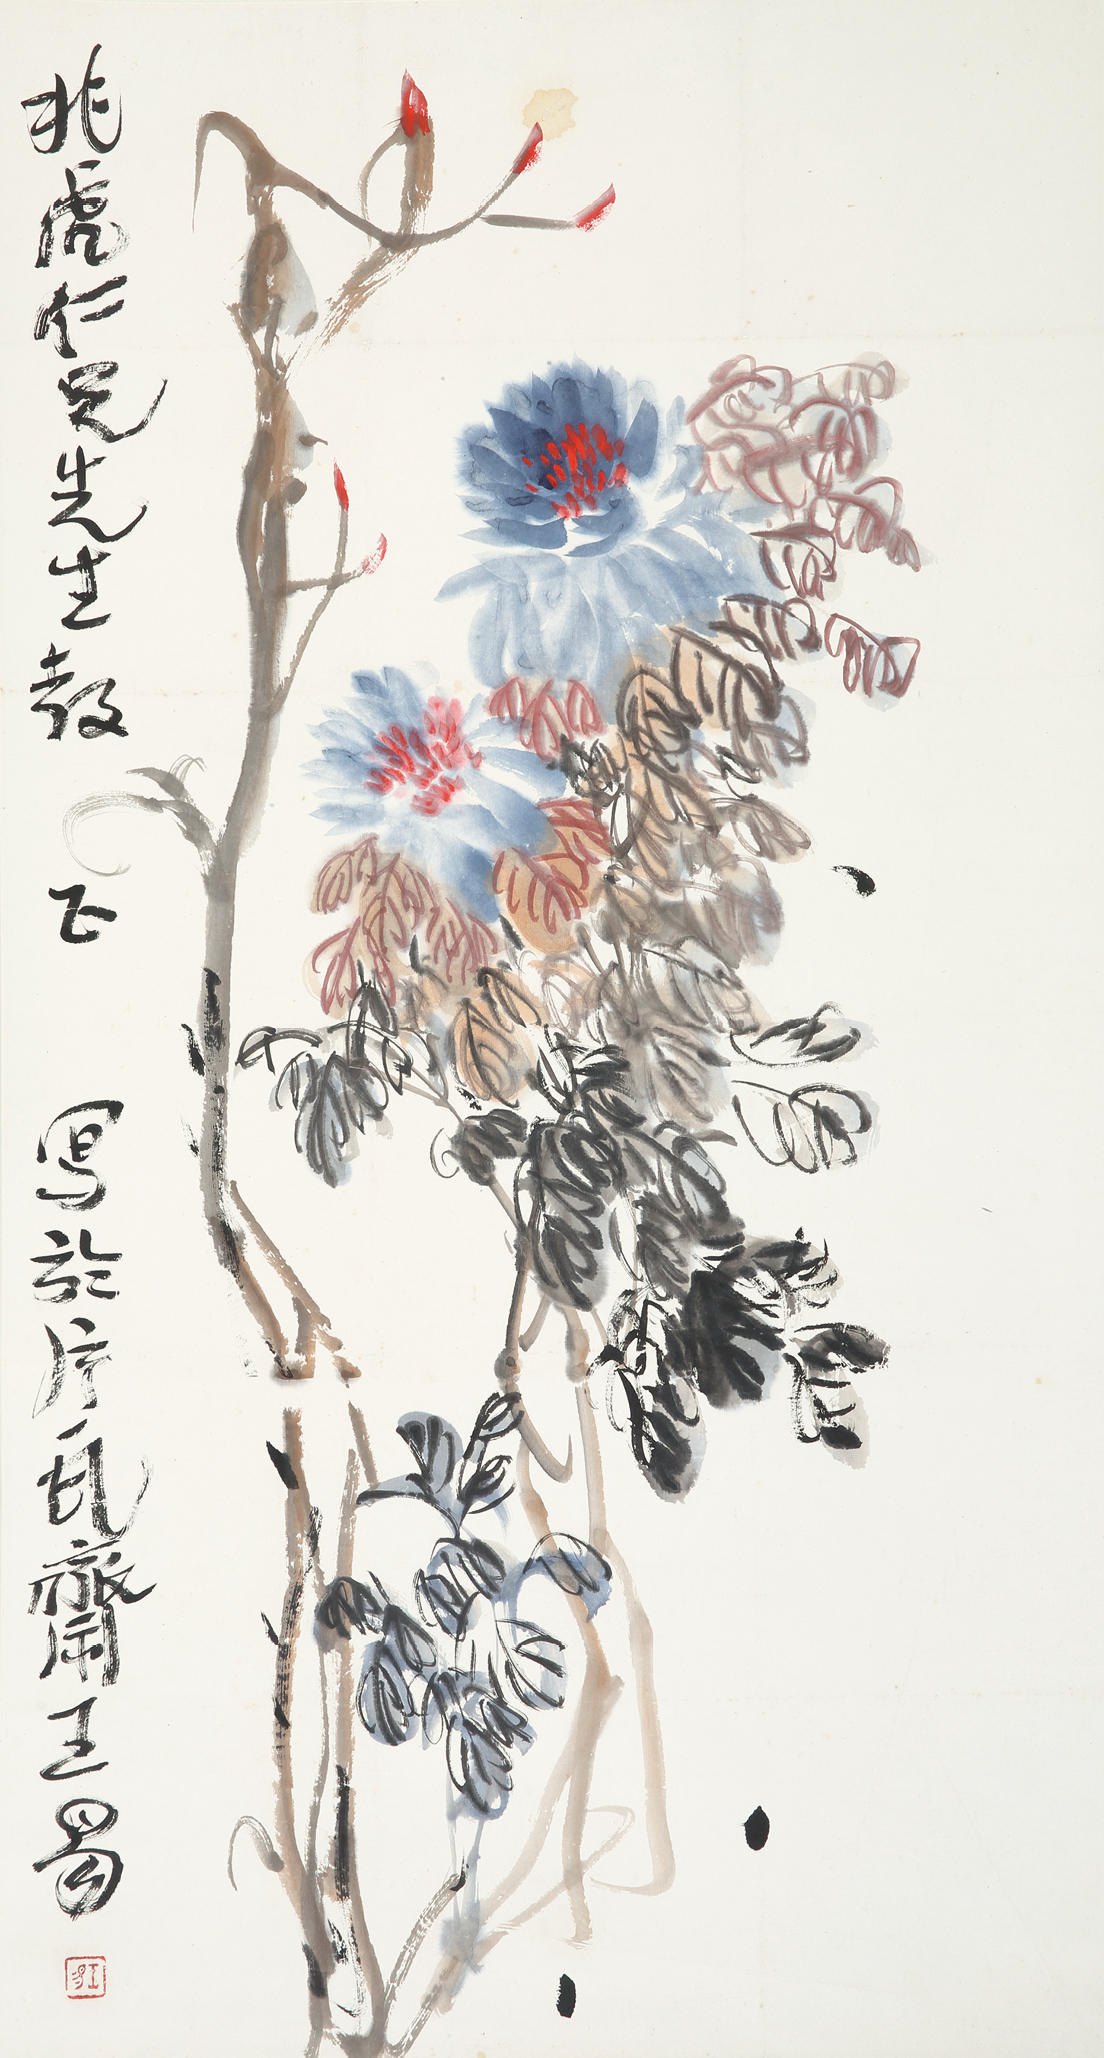 兆虎仁兄先生教 正 写於片瓦齋 王易